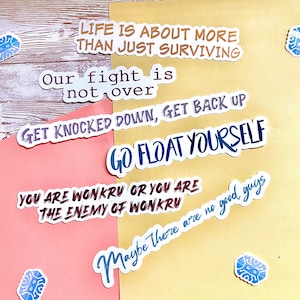 LIFE IS ABOUT MORE
THAN JUST SURVIVING
Our fight is
not over
GET KNOCKED DOWN, GET BACK UP
GO FLOAT YOURSELF
YOU ARE WONKRU OR YOU ARE
THE ENEMY OF WONKRU
Maybe there are no good guys